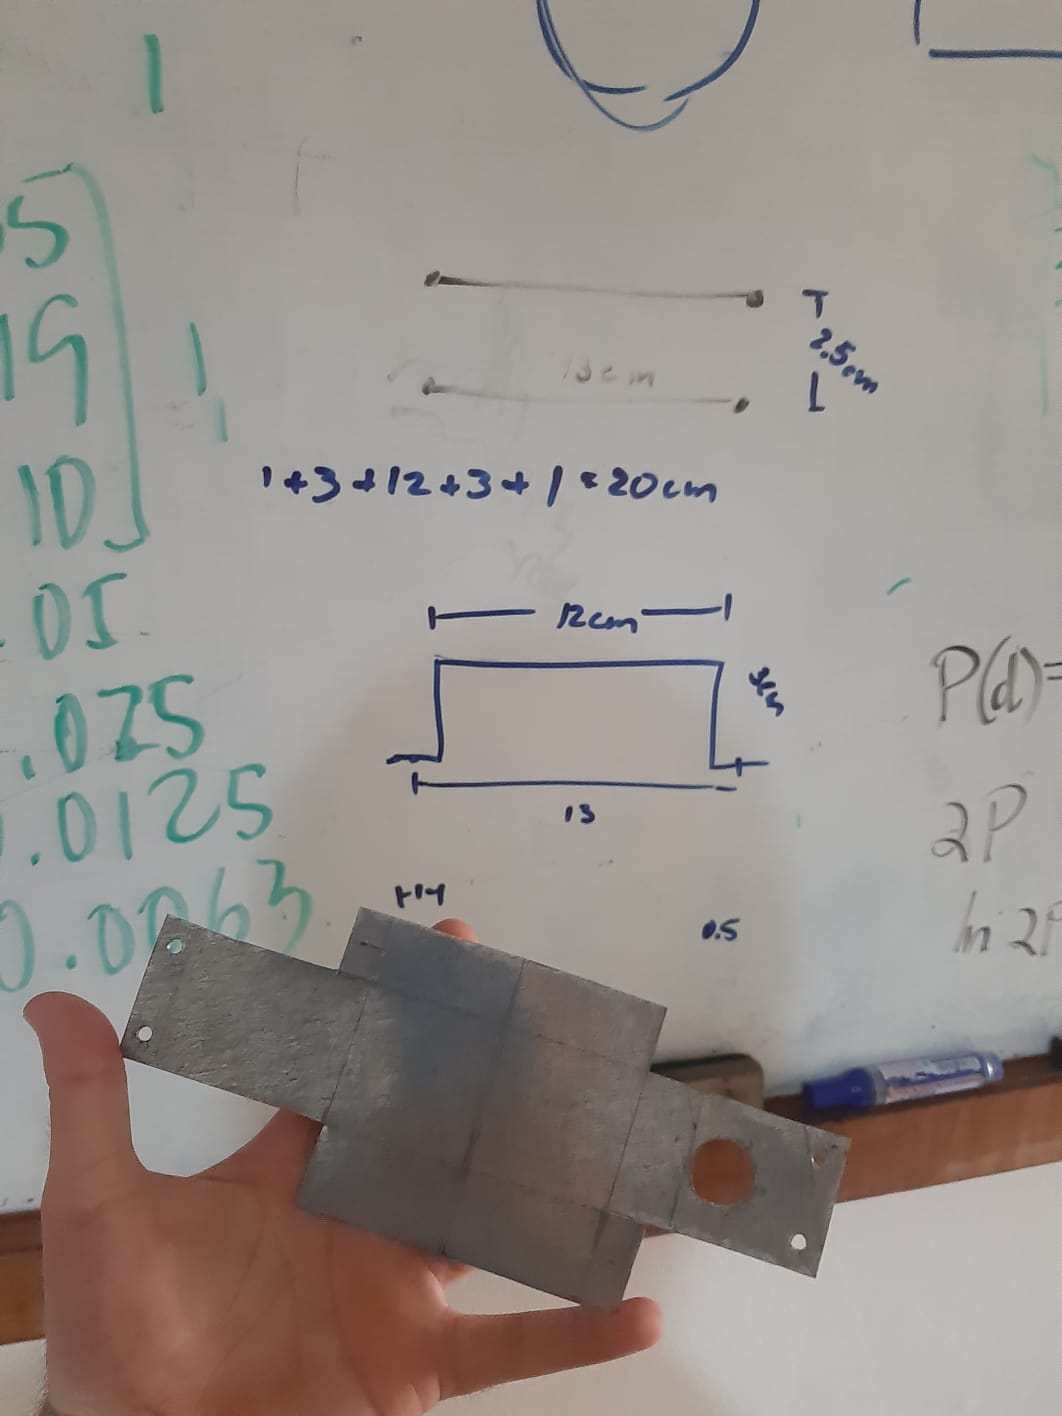 1
5
19
10
.05
.025
0.0125
0.0063
2.5cm
13cm
1+3+12+3+1=20cm
12cm
3cm
13
0.5
P(d)=
2P
ln 2P